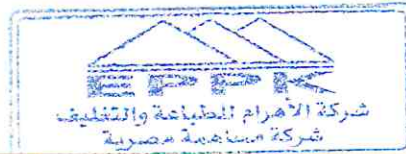 EPPK
شركة الأهرام للطباعة والتغليف
شركة مساهمة مصرية